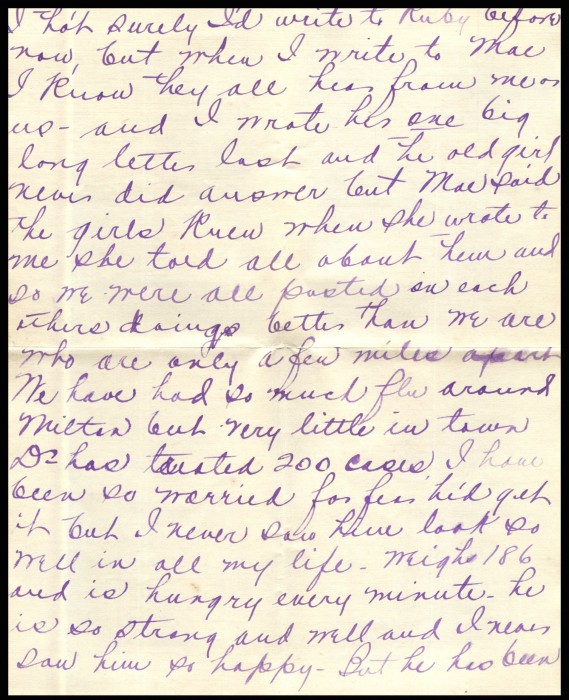 I tho't surely I'd write to Ruby before
now, but when I write to Mae
I Know they all hear from me or
us - and I wrote her one big
long letter last and the old girl
never did answer but Mae said
the girls Knew when she wrote to
me she told all about them and
so we were all posted on each
others doings better than we are
who are only a few miles apart
We have had so much flu around
Milton but very little in town
Dr has treated 200 cases, I have
been so worried for fear he'd get
it but I never saw him look so
well in all my life - weighs 186
and is hungry every minute - he
is so strong and well and I never
saw him so happy - But he has been